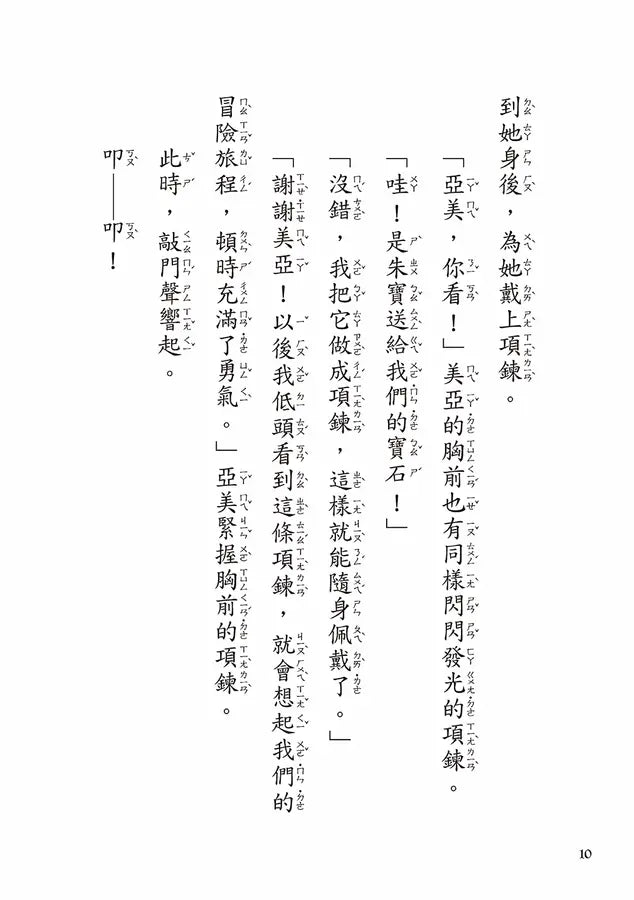 到她身後，為她戴上項鍊。
「亞美，你看！」美亞的胸前也有同樣閃閃發光的項鍊。
「哇！是朱寶送給我們的寶石！」
「沒錯，我把它做成項鍊，這樣就能隨身佩戴了。」
「謝謝美亞！以後我低頭看到這條項鍊，就會想起我們的
冒險旅程，頓時充滿了勇氣。」亞美緊握胸前的項鍊。
此時，敲門聲響起。
叩——叩！
10